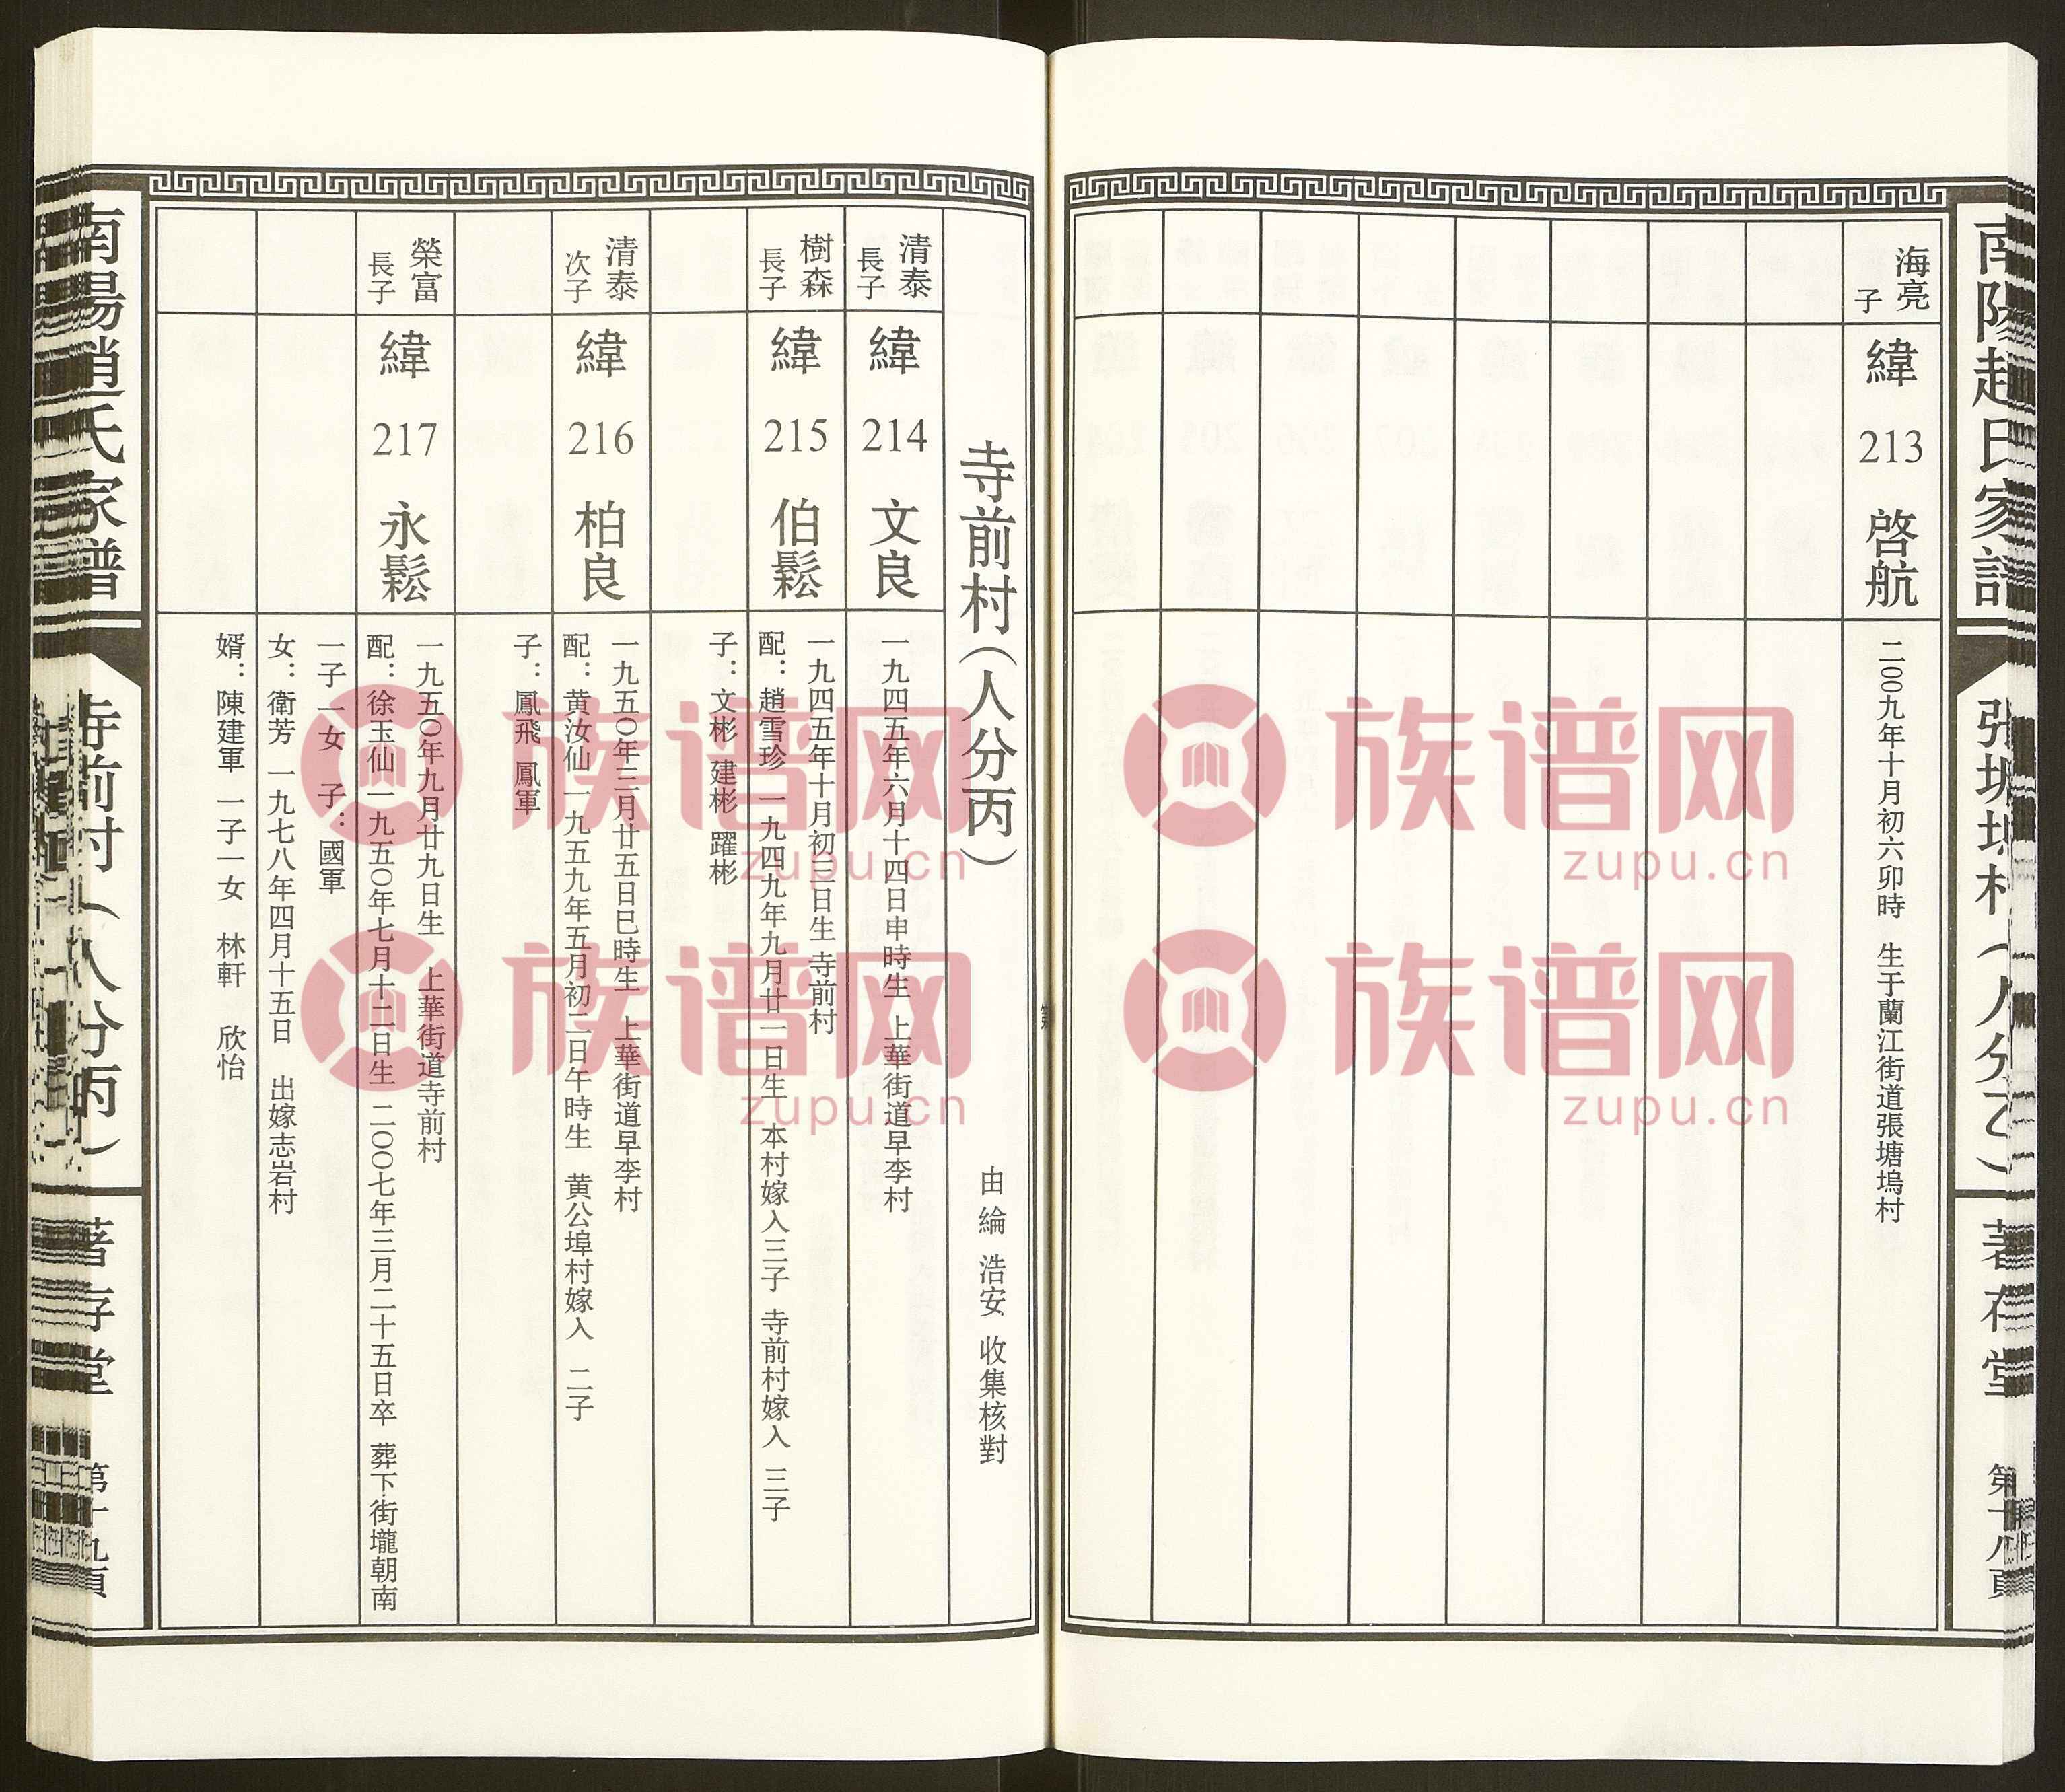 南陽趙氏家譜
張塘塢村（人分乙）
著存堂
第十八頁
海亮
子
緯 213 啓航
二○○九年十月初六卯時 生于蘭江街道張塘塢村
寺前村（人分丙）
由綸 浩安 收集核對
清泰
長子
緯 214 文良
一九四五年六月十四日申時生 上華街道早李村
樹森
長子
緯 215 伯鬆
一九四五年十月初三日生 寺前村
配：趙雪珍 一九四九年九月廿一日生 本村嫁入三子 寺前村嫁入 三子
子：文彬 建彬 躍彬
清泰
次子
緯 216 柏良
一九五○年三月廿五日巳時生 上華街道早李村
配：黄汝仙 一九五九年五月初二日午時生 黄公埠村嫁入 二子
子：鳳飛 鳳軍
榮富
長子
緯 217 永鬆
一九五○年九月廿九日生 上華街道寺前村
配：徐玉仙 一九五○年七月十二日生 二○○七年三月二十五日卒 葬下街壠朝南
一子一女 子：國軍
女：衛芳 一九七八年四月十五日 出嫁志岩村
婿：陳建軍 一子一女 林軒 欣怡
南陽趙氏家譜
寺前村（人分丙）
著存堂
第十九頁
族谱网
zupu.cn
族谱网
zupu.cn
族谱网
zupu.cn
族谱网
zupu.cn